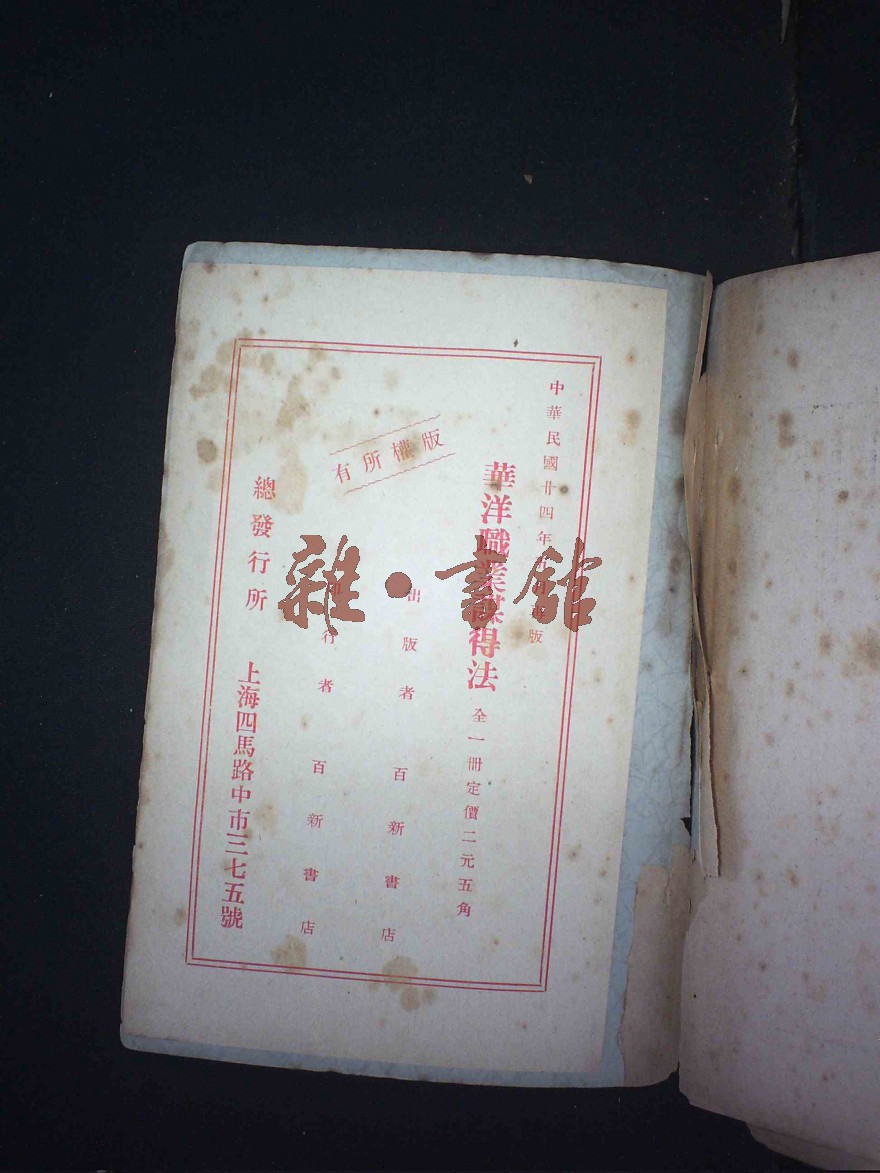 中華民國廿四年 版
華洋職業謀得法 全一冊定價二元五角
版權所有
出版者 百新書店
行者 百新書店
總發行所 上海四馬路中市三七五號
雜·書館